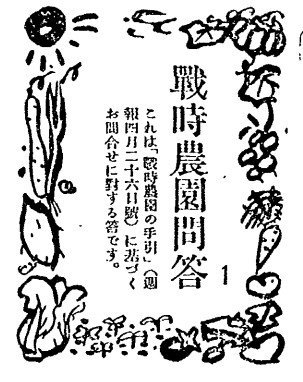 戰時農園問答
1
これは、「戰時農園の手引」（週
報四月二十六日號）に基づく
お問合せに對する答です。